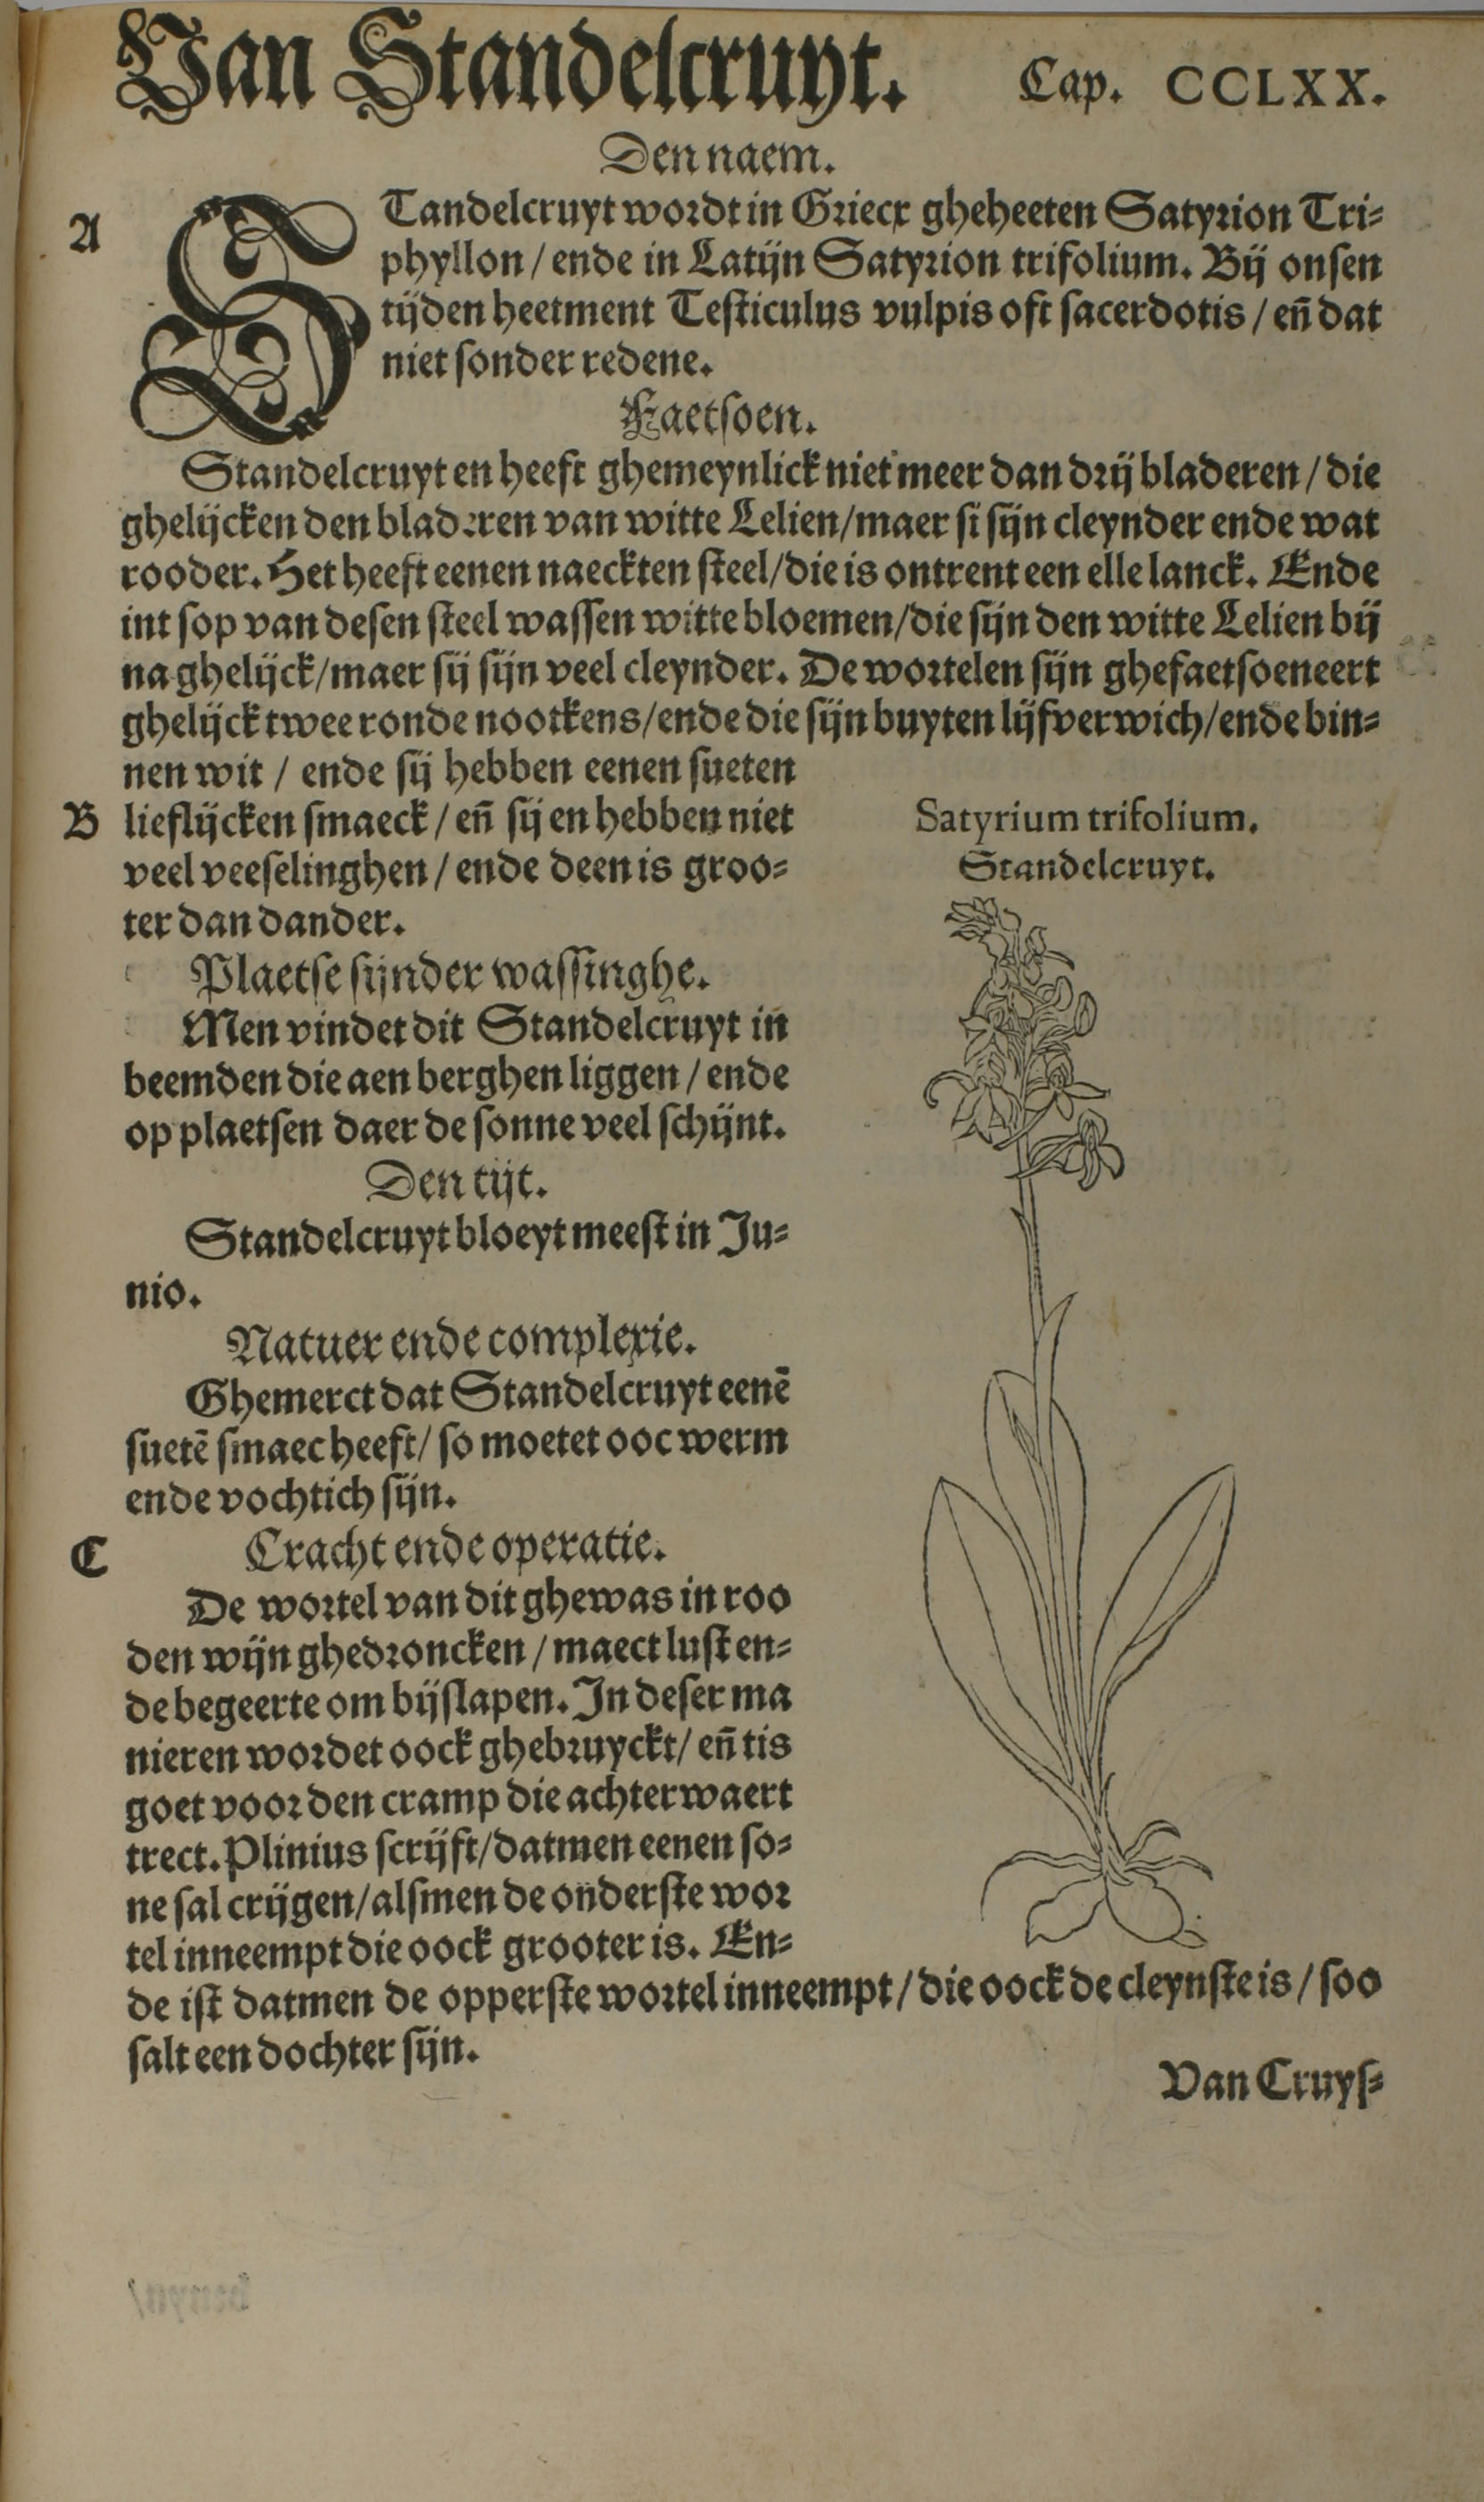 Van Standelcruyt. Cap. CCLXX.
Den naem.
A
STandelcruyt wordt in Griecx gheheeten Satyrion Tri-
phyllon / ende in Latijn Satyrion trifolium. Bij onsen
tijden heetment Testiculus vulpis oft sacerdotis / en̄ dat
niet sonder redene.
Faetsoen.
Standelcruyt en heeft ghemeynlick niet meer dan drij bladeren / die
ghelijcken den bladeren van witte Lelien/maer si sijn cleynder ende wat
rooder. Het heeft eenen naeckten steel/die is ontrent een elle lanck. Ende
int sop van desen steel wassen witte bloemen/die sijn den witte Lelien bij
na ghelijck/maer sij sijn veel cleynder. De wortelen sijn ghefaetsoeneert
ghelijck twee ronde nootkens/ende die sijn buyten lijfverwich/ende bin-
nen wit / ende sij hebben eenen sueten
B lieflijcken smaeck / en̄ sij en hebben niet
veel veeselinghen / ende deen is groo-
ter dan dander.
Satyrium trifolium.
Standelcruyt.
Plaetse sijnder wassinghe.
Men vindet dit Standelcruyt in
beemden die aen berghen liggen / ende
op plaetsen daer de sonne veel schijnt.
Den tijt.
Standelcruyt bloeyt meest in Ju-
nio.
Natuer ende complexie.
Ghemerct dat Standelcruyt eenē
suetē smaec heeft/ so moetet ooc werm
ende vochtich sijn.
C Cracht ende operatie.
De wortel van dit ghewas in roo
den wijn ghedroncken / maect lust en-
de begeerte om bijslapen. In deser ma
nieren wordet oock ghebruyckt/ en̄ tis
goet voor den cramp die achterwaert
trect. Plinius scrijft/datmen eenen so-
ne sal crijgen/alsmen de onderste wor
tel inneempt die oock grooter is. En-
de ist datmen de opperste wortel inneempt / die oock de cleynste is / soo
salt een dochter sijn.
Van Cruys-